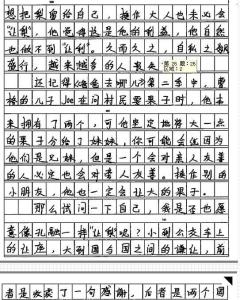 想把梨留给自己，换作大人也未必会
"让梨"，他觉得这是他的利益，他自然
也做不到"让利"。久而久之，自私之
盛行，越来越多的人
还记得《爸爸去哪儿》第二季中，曹
格的儿子Joe在问村民要果子时，他本
来拥有了两个，可他坚定地将大一点
的果子分给了妹妹。你可能会说因为
他们是兄妹，但是一个会对亲人友善
的人必定也会对旁人友善。换作别的
小朋友，他也一定会让大的果子。
那么试问一下自己，我是否也愿
意像孔融一样"让梨"呢？小到公交车上
的让座，大到国与国之间的谦让，前
者是收获了一句感谢，后者是两个国